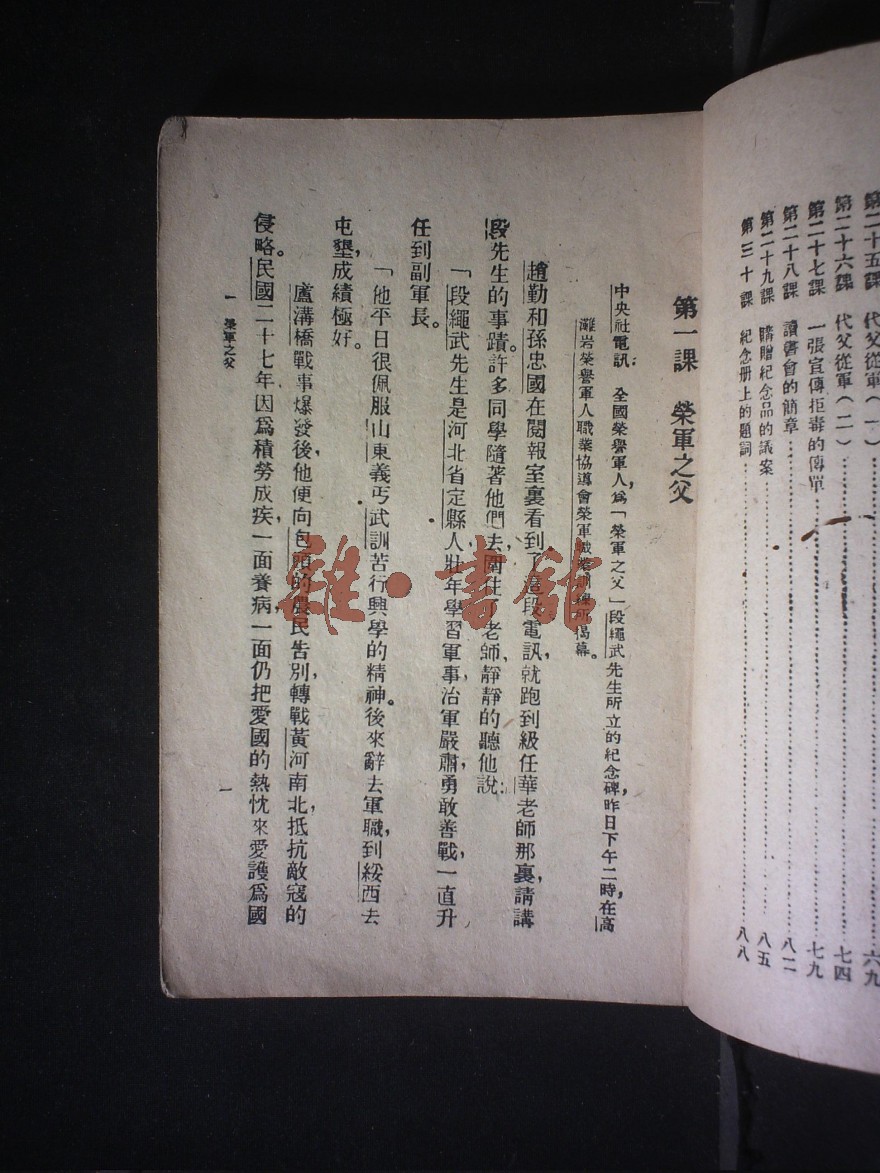 第二十五課 代父從軍(一)……六九
第二十六課 代父從軍(二)……七四
第二十七課 一張宣傳拒毒的傳單……七九
第二十八課 讀書會的簡章……八二
第二十九課 購贈紀念品的議案……八五
第三十課 紀念册上的題詞……八八
第一課 榮軍之父
中央社電訊:全國榮譽軍人,爲「榮軍之父」段繩武先生所立的紀念碑,昨日下午二時,在高
灘岩榮譽軍人職業協導會榮軍職業訓練所揭幕。
趙勤和孫忠國在閱報室裏看到了這段電訊,就跑到級任華老師那裏,請講
段先生的事蹟。許多同學隨著他們去,圍住了老師,靜靜的聽他說:
「段繩武先生是河北省定縣人,壯年學習軍事,治軍嚴肅,勇敢善戰,一直升
任到副軍長。
「他平日很佩服山東義丐武訓苦行興學的精神。後來辭去軍職,到綏西去
屯墾,成績極好。
蘆溝橋戰事爆發後,他便向包頭的農民告別,轉戰黃河南北,抵抗敵寇的
侵略。民國二十七年因爲積勞成疾,一面養病,一面仍把愛國的熱忱來愛護爲國
一 榮軍之父
一
雜·書館